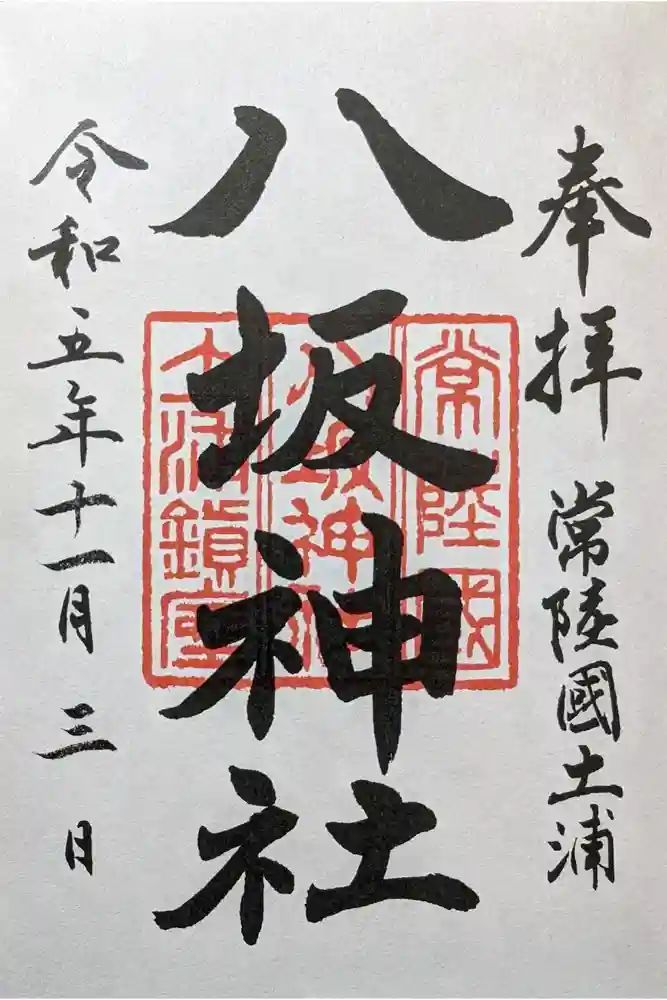 奉拝 常陸國土浦
八坂神社
令和五年十一月三日
常陸國
八坂神社
土浦鎮守